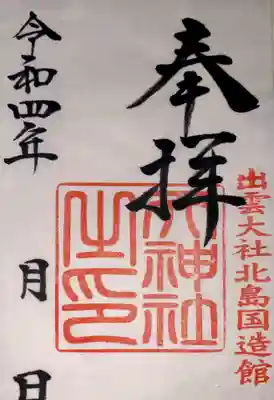 出雲大社北島国造館
奉拝
神社
之印
令和四年
月
日